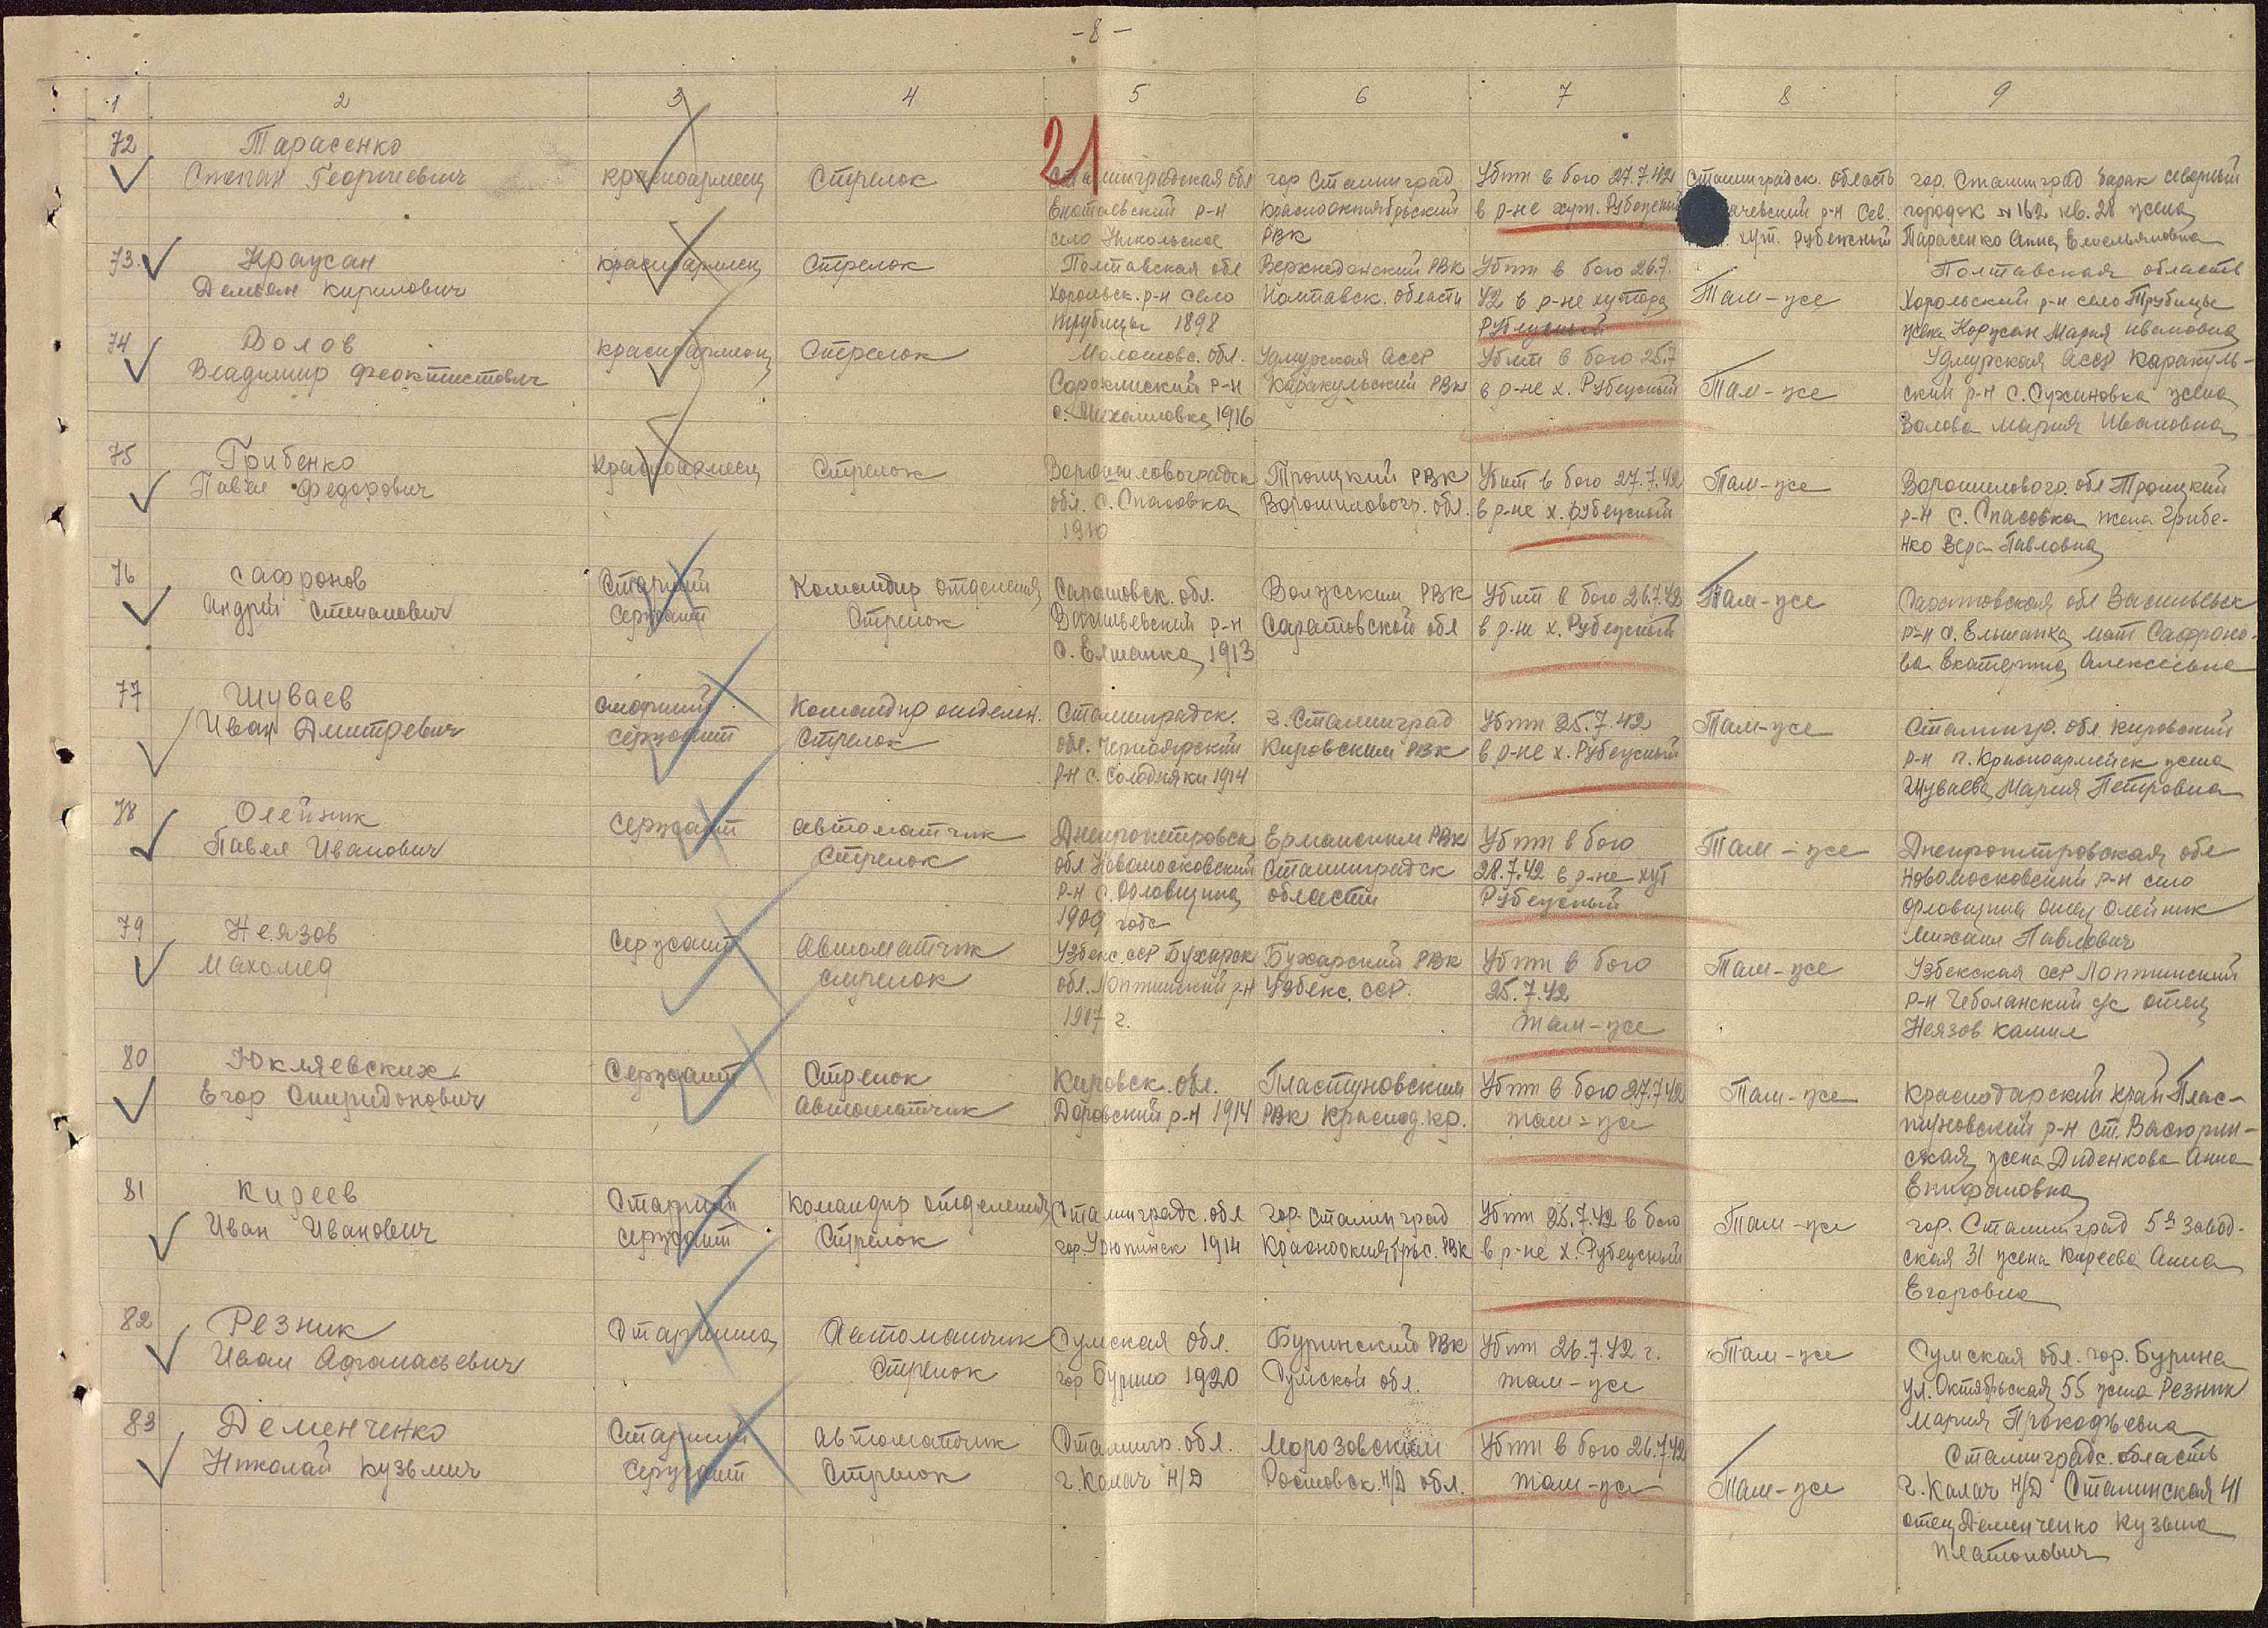 -8-
1 2 3 4 5 6 7 8 9
21
72 Тарасенко
Степан Георгиевич красноармеец Стрелок Сталинградская обл гор Сталинград Убит в бою 27.7.42 Сталинградск. область гор. Сталинград барак северный
Енотаевский р-н Краснооктябрьский в р-не хут. Рубежный чевский р-н Сев. городок №162 кв. 28 жена
село Никольское РВК хут. Рубежный Тарасенко Анна Емельяновна
73. Краусан красноармеец Стрелок Полтавская обл Верхнедонский РВК Убит в бою 26.7. Полтавская область
Демьян Кирилович Хорольск. р-н село Полтавск. области 42 в р-не хутора Там-же Хорольский р-н село Трубицы
Трубицы 1898 Рубежный жена Корусан Мария Ивановна
74 Волов красноармеец Стрелок Молотовс. обл. Удмурская АССР Убит в бою 25.7 Удмурская АССР Каракуль-
Владимир Феоктистович р-н Каракульский РВК в р-не х. Рубежный Там-же ский р-н с. Сухановка жена
с. Михайловка 1916 Волова Мария Ивановна
75 Грибенко Красноармеец Стрелок Ворошиловоградск Троицкий РВК Убит в бою 27.7.42 Там-же Ворошиловогр. обл Троицкий
Павел Федорович обл. с. Спасовка Ворошиловогр. обл. в р-не х. Рубежный р-н с. Спасовка жена Грибе-
1910 нко Вера Павловна
76 Сафронов Старший Командир отделения Саратовск. обл. Вольским РВК Убит в бою 26.7.42 Там-же Саратовская обл Васильевск
Андрей Степанович Сержант Стрелок Васильевский р-н Саратовской обл в р-не х. Рубежный р-н с. Ельшанка мать Сафроно-
с. Елшанка 1913 ва Екатерина Алексеевна
77 Шуваев старший Командир отделен. Сталинградск. г. Сталинград Убит 25.7.42 Там-же Сталингр. обл Кировский
Иван Дмитревич сержант Стрелок обл. Черноярский Кировским РВК в р-не х. Рубежный р-н п. Красноармейск жена
р-н с. Солодняки 1914 Шуваева Мария Петровна
78 Олейник Сержант автоматчик Днепропетровск Ерманским РВК Убит в бою Там-же Днепропетровская обл
Павел Иванович Стрелок обл Новомосковский Сталинградск 28.7.42 в р-не хут Новомосковский р-н село
р-н с. Орловщина области Рубежный Орловщина отец Олейник
1909 года Михаил Павлович
79 Неязов Сержант Автоматчик Узбекс. ССР Бухарск Бухарский РВК Убит в бою Там-же Узбекская ССР
Махомед стрелок обл. р-н Узбекс. ССР. 25.7.42 р-н с/с отец
1907 г. там-же Неязов Камил
80 Юкляевских Сержант Стрелок Кировск. обл. Пластуновским Убит в бою 27.7.42 Там-же Краснодарский край Плас-
Егор Спиридонович Автоматчик Даровский р-н 1914 РВК Краснод. кр. там-же туновский р-н ст. Васюрин-
ская жена Диденкова Анна
Епифановна
81 Киреев Старший Командир отделения Сталинградс. обл гор. Сталинград Убит 25.7.42 в бою Там-же гор. Сталинград 5я Завод-
Иван Иванович сержант Стрелок гор. Урюпинск 1914 Краснооктябрьс. РВК в р-не х. Рубежный ская 31 жена Киреева Анна
Егоровна
82 Резник Старшина Автоматчик Сумская обл. Буринский РВК Убит 26.7.42 г. Там-же Сумская обл. гор. Бурина
Иван Афанасьевич Стрелок гор Бурино 1920 Сумской обл. там-же ул. Октябрьская 55 жена Резник
Мария Прокофьевна
83 Деменченко Старший автоматчик Сталингр. обл. Морозовским Убит в бою 26.7.42 Сталинградс. область
Николай Кузьмич Сержант Стрелок г. Калач Н/Д Ростовск. Н/Д обл. там-же Там-же г. Калач Н/Д Сталинская 41
отец Деменченко Кузьма
Платонович